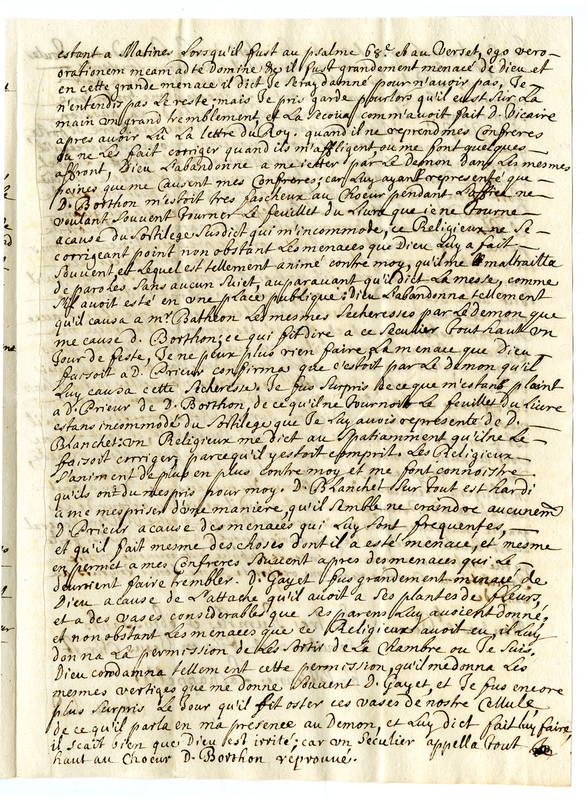 estant a Matines Lorsqu'il fust au psalme 68.e et au Verset, ego vero
orationem meam ad te Domine &c il fust grandement menacé de Dieu et
en cette grande menace il dict Je seray damné pour n'avoir pas, Je
n'entendis pas Le reste, mais Je pris garde pourlors qu'il eust sur La
main un grand tremblement, et La secoua comm'avoit fait D. Vicaire
apres avoir Lû La lettre du Roy. quand il ne reprend mes Confreres
ou ne Les fait corriger quand ils m'affligent, ou me font quelques
affront, Dieu L'abandonne a me ietter par Le Demon dans Les mesmes
peines que me Causent mes Confreres; car Luy ayant representé que
D. Borthon m'estoit tres fascheux au Choeur pendant L'office ne
voulant souvent tourner Le feuillet du Livre que ie ne tourne
a cause du sortilege susdict qui m'incommode, ce Religieux ne se
corrigeant point non obstant Les menaces que Dieu Luy a fait
souvent, et Lequel est tellement animé contre moy, qu'il me maltraitta
de paroles sans aucun suiet, auparavant qu'il dict La messe, comme
s'il avoit esté en une place publique: Dieu L'abandonna tellement
qu'il causa a mr. Batheon Les mesmes secheresses par Le Demon que
me cause D. Borthon; ce qui fit dire a ce seculier tout haut un
Jour de feste, Je ne peux plus rien faire, La menace que Dieu
faisoit a D. Prieur confirma que c'estoit par Le Demon qu'il
Luy causa cette secheresse. Je fus surpris de ce que m'estant plaint
a D. Prieur de D. Borthon, de ce qu'il ne tournoit Le feuillet du Livre
estans incommodé du sortilege que Je Luy avois representé de D.
Blanchet: un Religieux me dict au spatiamment qu'il ne Le
faisoit corriger parcequ'il y estoit comprit. Les Religieux
s'animent de plus en plus contre moy et me font connoistre
qu'ils ont du mespris pour moy. D. Blanchet sur tout est hardi
a me mespriser d'une maniere, qu'il semble ne craindre aucunemt
D. Prieur a cause des menaces qui Luy sont frequentes,
et qu'il fait mesme des choses dont il a esté menacé, et mesme
en permet a mes Confreres souvent apres des menaces qui Le
devrient faire trembler. D. Gayet fus grandement menacé de
Dieu a cause de L'attache qu'il avoit a ses plantes de fleurs,
et a des vases considerables que ses parens Luy avoient donné,
et non obstant Les menaces que ce Religieux avoit eu, il Luy
donna La permission de Les sortis de La Chambre ou Je suis.
Dieu condamna tellement cette permission, qu'il me donna Les
mesmes vertiges que me donne souvent D. Gayet, et Je fus encore
plus surpris Le Jour qu'il fit oster ces vases de nostre Cellule,
de ce qu'il parla en ma presence au Demon, et Luy dict fait luy faire,
il scait bien que Dieu est irrité; car un seculier appella tout
haut au Choeur D. Borthon reprouué.